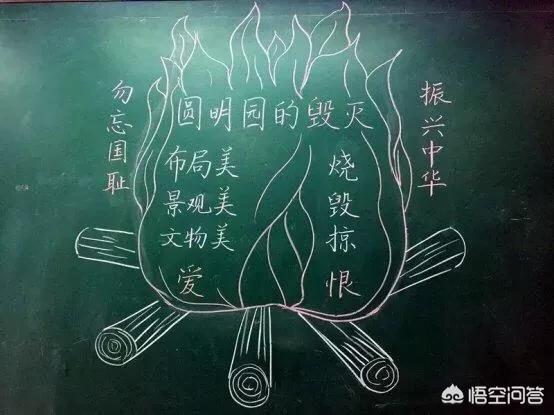 圆明园的毁灭
勿忘国耻
振兴中华
布局美
景观美
文物美
爱
烧
毁
掠
恨
悟空问答